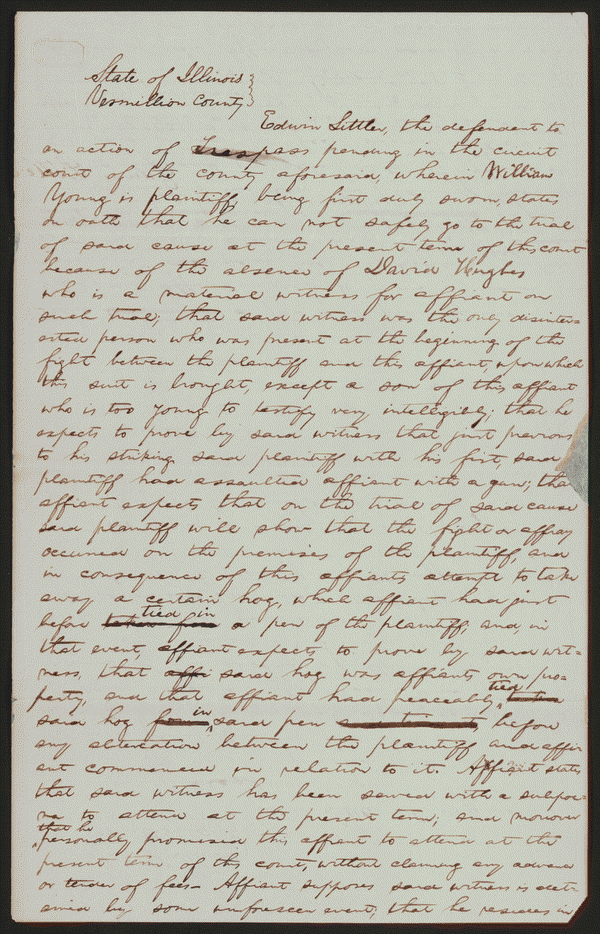 State of Illinois }
Vermillion County }
Edwin Littler, the defendant to
an action of Trespass pending in the circuit
court of the county aforesaid, wherein William
Young is plaintiff, being first duly sworn, states
on oath that he can not safely go to the trial
of said cause at the present term of this court
because of the absence of David Hughes
who is a material witness for affiant on
such trial; that said witness was the only disinter-
ested person who was present at the beginning of the
fight between the plaintiff and this affiant, upon which
this suit is brought, except a son of this affiant
who is too young to testify very intelligibly; that he
expects to prove by said witness that just previous
to his striking said plaintiff with his fist, said
plaintiff had assaulted affiant with a gun; that
affiant expects that on the trial of said cause
said plaintiff will show that the fight or affray
occurred on the premises of the plaintiff, and
in consequence of this affiants attempt to take
away a certain hog, which affiant had just
before taken from tied in a pen of the plaintiff, and, in
that event, affiant expects to prove by said wit-
ness, that affi said hog was affiants own pro-
perty, and that affiant had peaceably tied taken
said hog from in said pen before
any altercation between the plaintiff and affi-
ant commenced in relation to it. Affiant states
that said witness has been served with a subpoe-
na to attend at the present term; and moreover
that he personally promised this affiant to attend at the
present term of this court, without claiming any advance
or tender of fees - Affiant supposes said witness is det-
ained by some unforeseen event; that he resides in